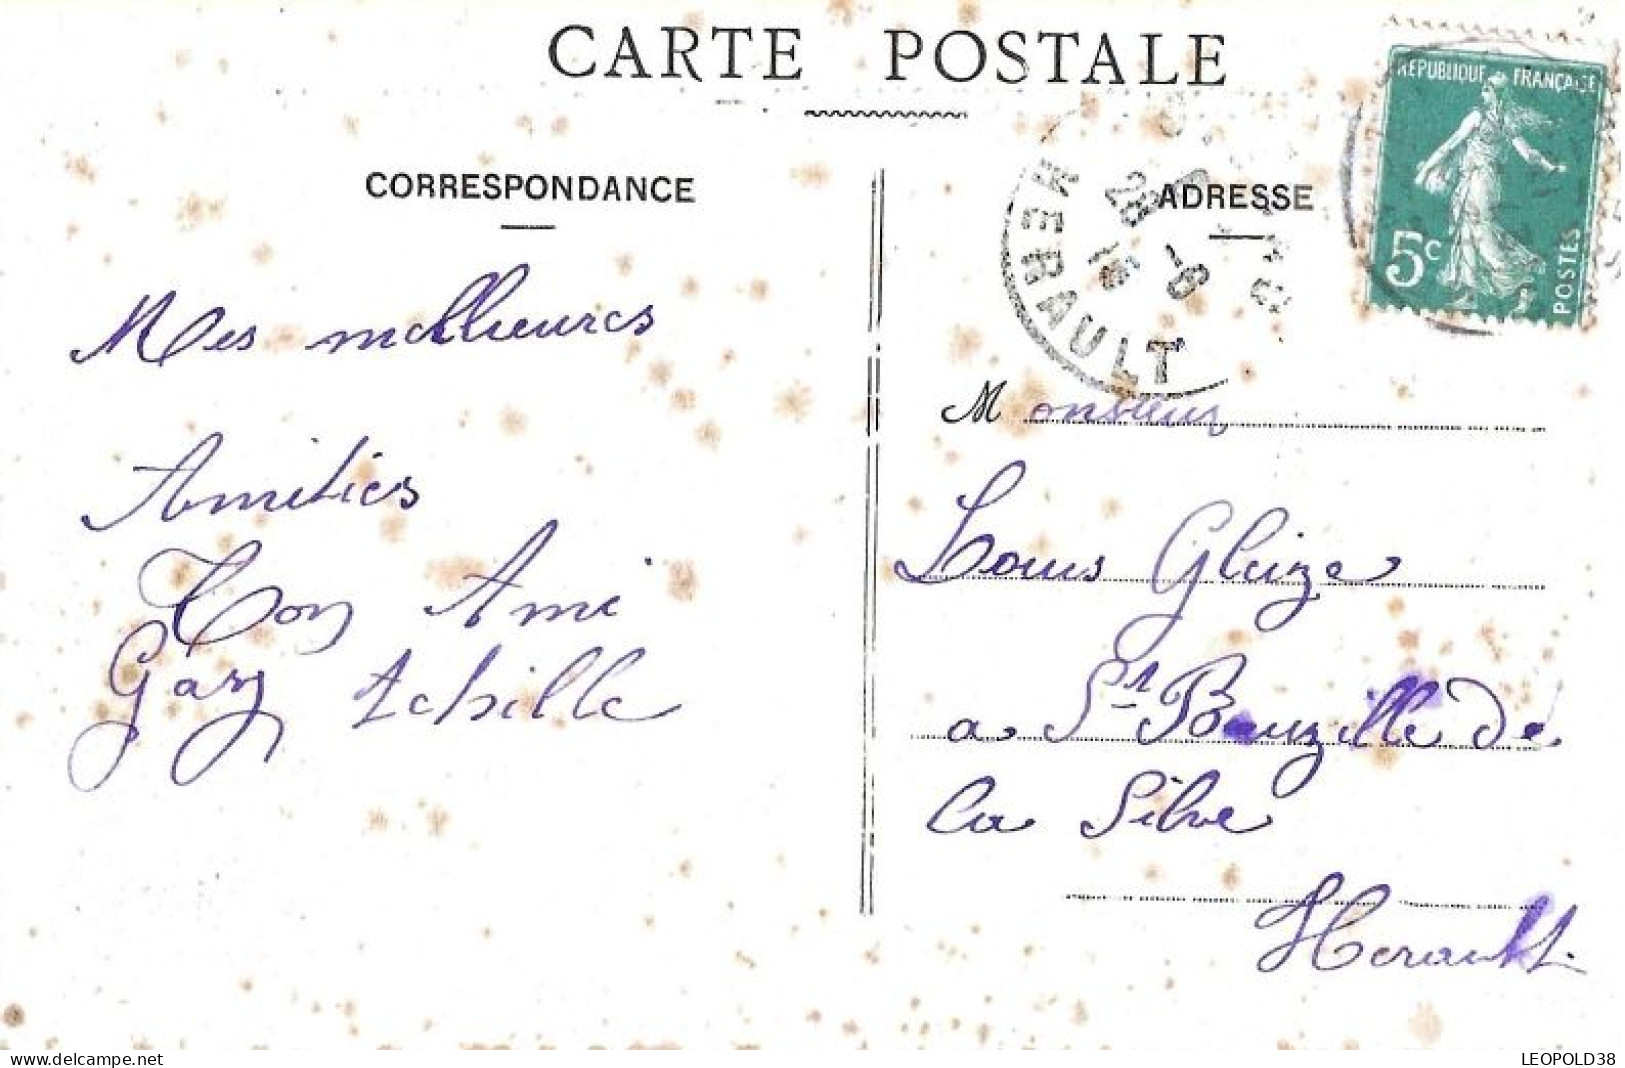 CARTE POSTALE
CORRESPONDANCE
Mes meilleures
Amitiés
Ton Ami
Gary Achille
ADRESSE
REPUBLIQUE FRANÇAISE
5c
POSTES
28 -6
HERAULT
Monsieur
Louis Gleize
a St Bauzille de
la Silve
Herault.
www.delcampe.net
LEOPOLD38